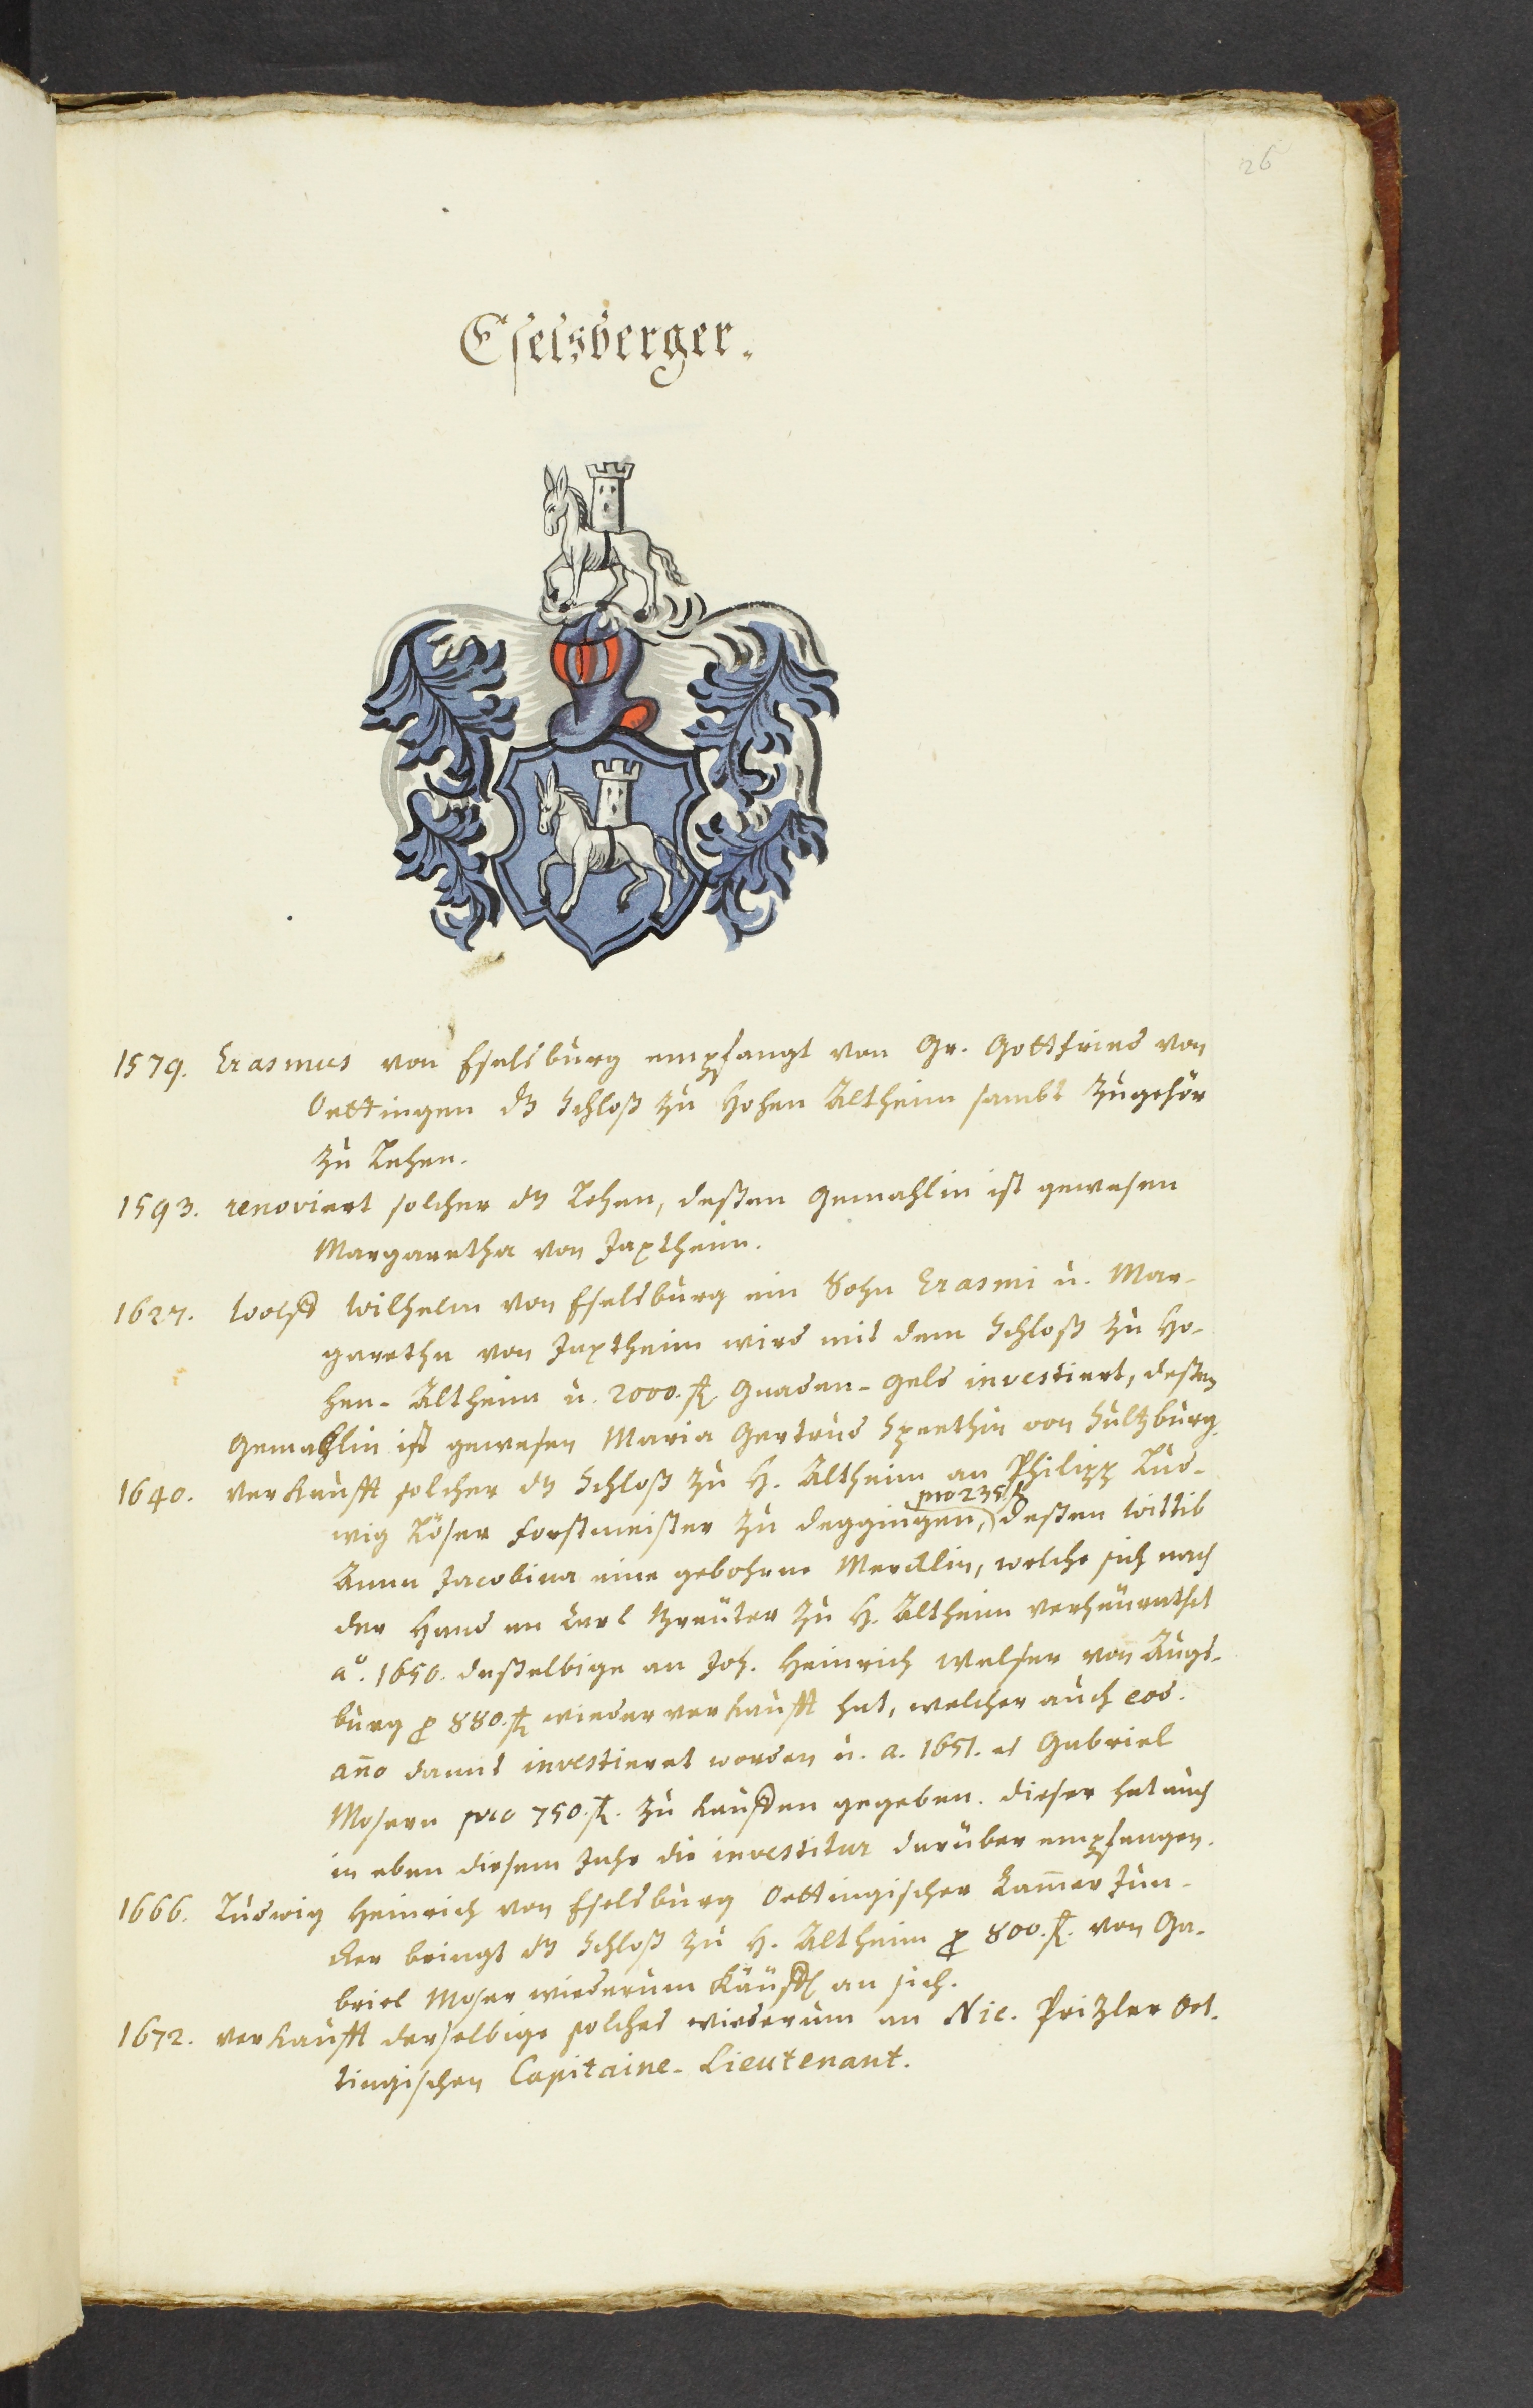 26
Eselsberger.
1579. Erasmus von Eselsburg empfangt von Gr. Gottfried von
Oettingen dz Schloß zu Hohen Altheim sambt Zugehör
zu Lehen.
1593. renoviert solcher dz Lehen, deßen Gemahlin ist gewesen
Margaretha von Jaxtheim.
1627. Wolff Wilhelm von Eselsburg ein Sohn Erasmi u. Mar-
garetha von Jaxtheim wird mit dem Schloß zu Ho-
hen-Altheim u. 2000. fl. Gnaden-Geld investiert, deßen
Gemahlin ist gewesen Maria Gertrud Speethin von Sultzburg.
1640. verkaufft solcher dz Schloß zu H. Altheim an Philipp Lud-
pro 235 fl
wig Löser Forstmeister zu Deggingen, deßen Wittib
Anna Jacobina eine gebohrne Mercklin, welche sich nach
der Hand an Carl Breuter zu H. Altheim verheürathet
aº. 1650. deßelbige an Joh. Heinrich Welser von Augs-
burg p 880. fl. wieder verkaufft hat, welcher auch eod.
an̄o damit investieret worden u. a. 1651. es Gabriel
Mosern pro 750. fl. zu kauffen gegeben. dieser hat auch
in eben diesem Jahr die investitur darüber empfangen.
1666. Ludwig Heinrich von Eselsburg Oettingischer Cam̄er Jun-
cker bringt dz Schloß zu H. Altheim p 800. fl. von Ga-
briel Moser wiederum käuffl. an sich.
1672. verkaufft derselbige solches wiederum an Nic. Prizler Oet-
tingischen Capitaine-Lieutenant.